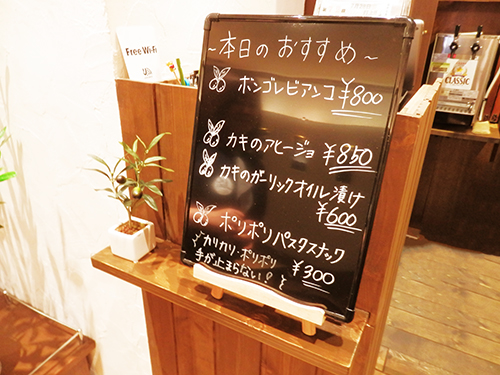 Free Wi-Fi
~本日のおすすめ~
ボンゴレビアンコ ¥800
カキのアヒージョ ¥850
カキのガーリックオイル漬け
¥600
ポリポリパスタスナック
¥300
カリカリ・ポリポリ
手が止まらない!
CLASSIC